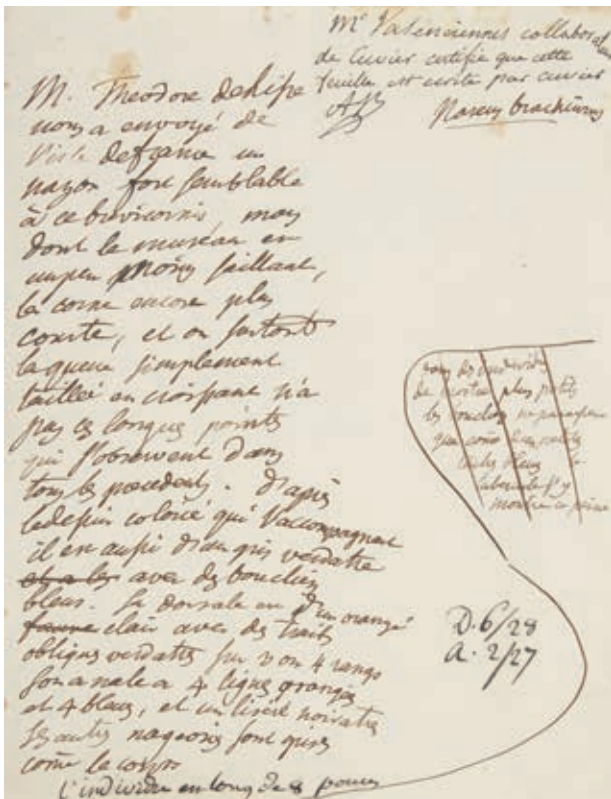 Mr Valenciennes collaborateur
de Cuvier certifie que cette
feuille est ecrite par cuvier
Naseus brachiurus
M. Theodore delise
nous a envoyé de
l'isle de france un
nazon fort semblable
à ce brevicornis, mais
dont le museau est
un peu moins saillant,
la corne encore plus
courte, et ou surtout
la queue simplement
taillée en croissant n'a
pas ces longues pointes
qui s'observent dans
tous les precedents. d'après
le dessin colorié qui l'accompagnent
il est aussi d'un gris verdatre
et a les avec des boucliers
bleus. Sa dorsale est d'un orangé
fauve clair avec des traits
obliques verdatres sur 3 ou 4 rangs
son anale a 4 lignes orangées
et 4 bleues, et un liseré noiratre
Les autres nageoires sont grises
come le corps
L'individu est long de 8 pouces
des individus
plus petits
les boucliers ne paraissent
que come deux petits
bleus
s'y
montre a peine
D. 6/28
A. 2/27